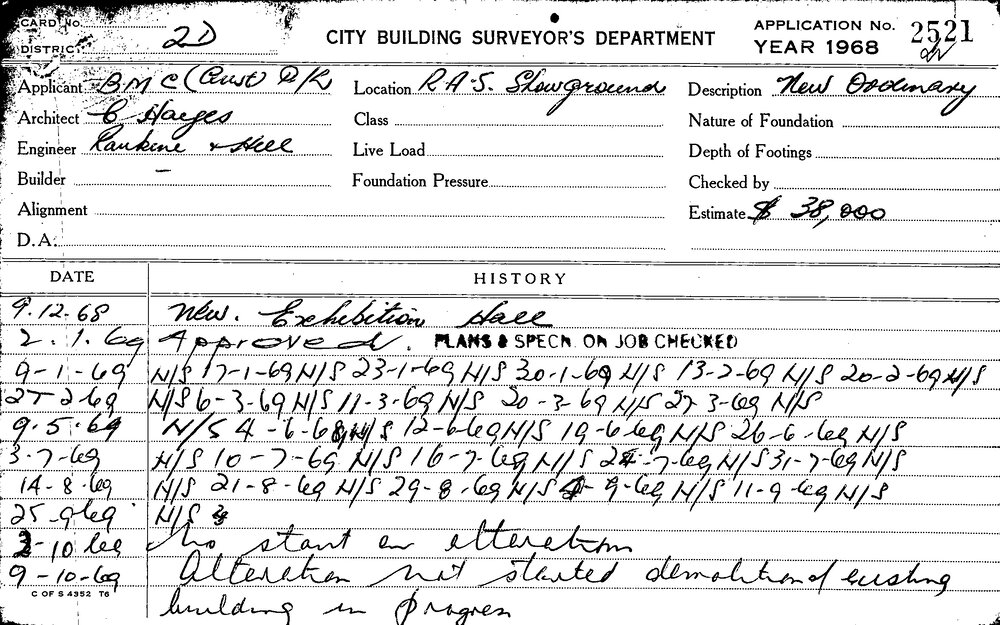 CARD No.
DISTRICT 2D
CITY BUILDING SURVEYOR'S DEPARTMENT
APPLICATION No. 2521
YEAR 1968
Applicant B M C (Aust) P/L Location R.A.S. Showground Description New Ordinary
Architect C Haeges Class Nature of Foundation
Engineer Rankine & Hill Live Load Depth of Footings
Builder – Foundation Pressure Checked by
Alignment Estimate $ 38,000
D.A.
DATE HISTORY
9.12.68 New. Exhibition Hall
2.1.69 Approved. PLANS & SPECN. ON JOB CHECKED
9-1-69 N/S 17-1-69 N/S 23-1-69 N/S 30-1-69 N/S 13-2-69 N/S 20-2-69 N/S
27 2-69 N/S 6-3-69 N/S 11-3-69 N/S 20-3-69 N/S 27 3-69 N/S
9.5.69 N/S 4-6-68 N/S 12-6-69 N/S 19-6-69 N/S 26-6-69 N/S
3-7-69 N/S 10-7-69 N/S 16-7-69 N/S 24-7-69 N/S 31-7-69 N/S
14-8-69 N/S 21-8-69 N/S 29-8-69 N/S 4-9-69 N/S 11-9-69 N/S
25 9 69 N/S
2-10 69 No start on alteration
9-10-69 Alteration not started demolition of existing
C OF S 4352 T6
building in progress